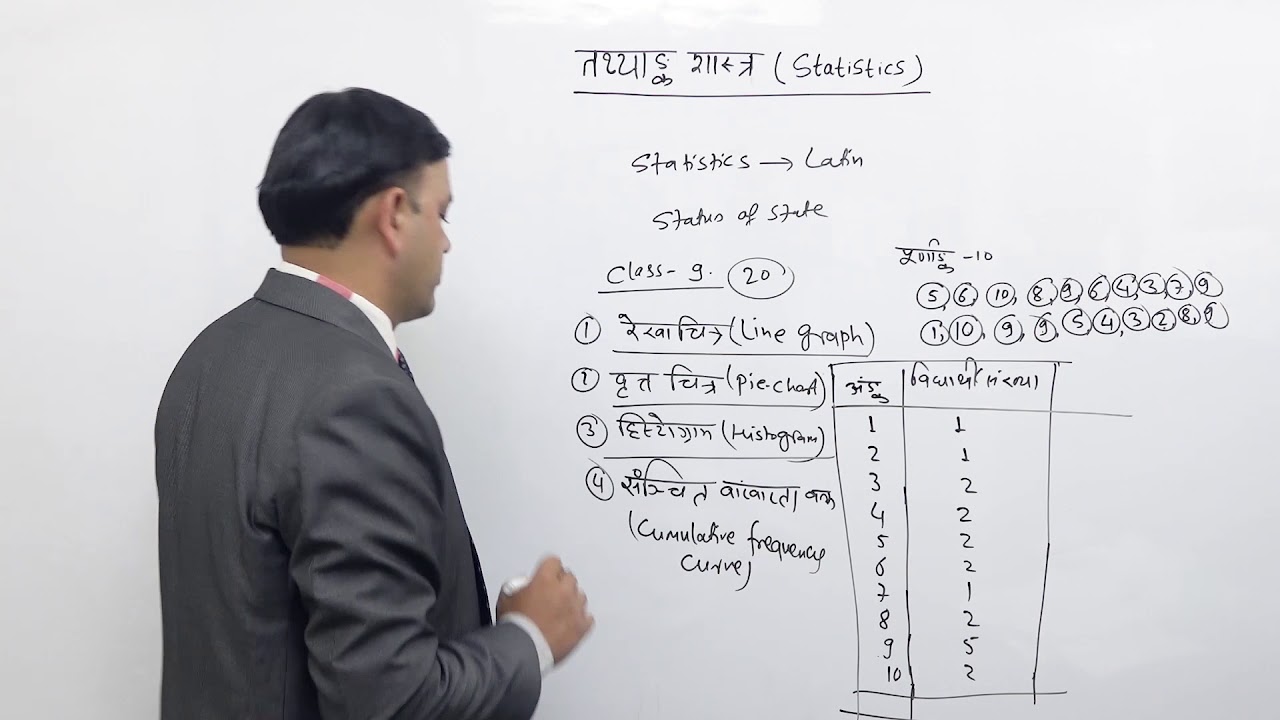 तथ्याङ्क शास्त्र (Statistics)
Statistics → Latin
Status of state
Class- 9. 20
पूर्णाङ्क -10
5, 6, 10, 8, 9, 6, 4, 3, 7, 9
1, 10, 9, 9, 5, 4, 3, 2, 8, 9
① रेखाचित्र (Line graph)
② वृत्त चित्र (Pie-chart)
③ हिस्टोग्राम (Histogram)
④ सञ्चित वारंवारता वक्र
(Cumulative frequency
Curve)
अंङ्क विद्यार्थी संख्या
1 1
2 1
3 2
4 2
5 2
6 2
7 1
8 2
9 5
10 2